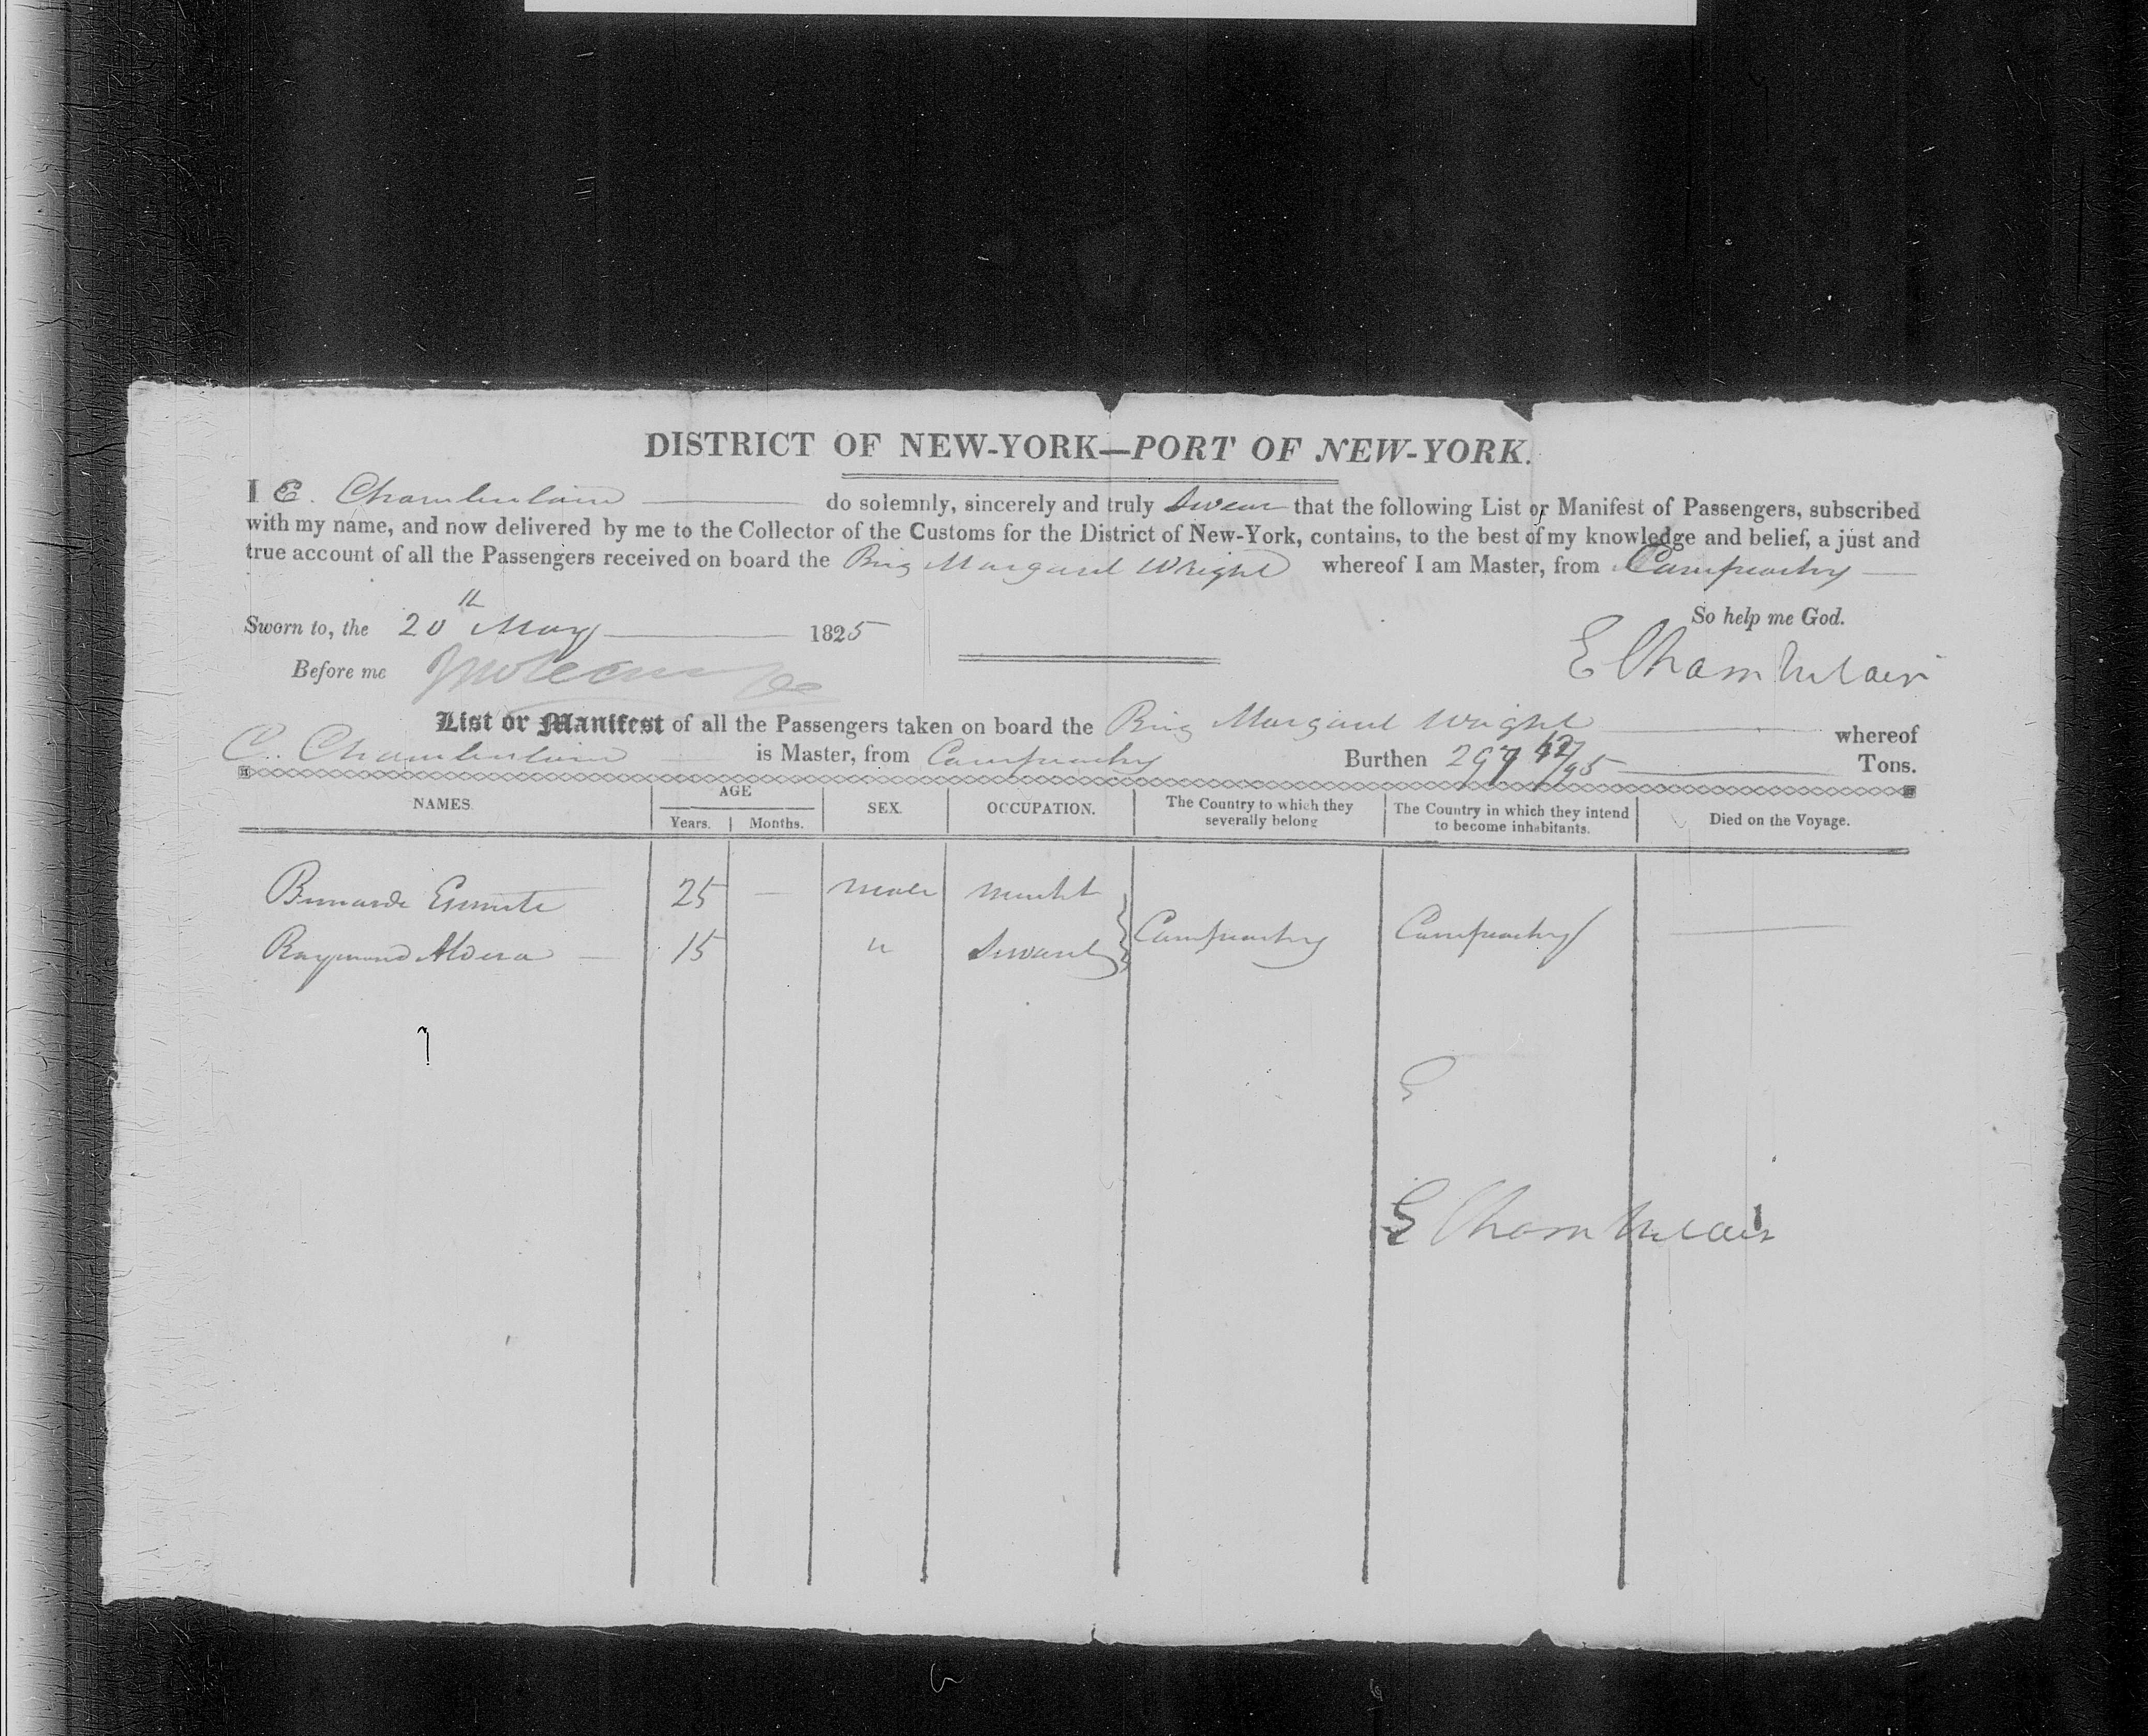 DISTRICT OF NEW-YORK—PORT OF NEW-YORK.
I E. Chamberlain do solemnly, sincerely and truly Swear that the following List or Manifest of Passengers, subscribed
with my name, and now delivered by me to the Collector of the Customs for the District of New-York, contains, to the best of my knowledge and belief, a just and
true account of all the Passengers received on board the Brig Margaret Wright whereof I am Master, from Campeachy
So help me God.
Sworn to, the 20th May 1825
E Chamberlain
Before me
List or Manifest of all the Passengers taken on board the Brig Margaret Wright whereof
C. Chamberlain is Master, from Campeachy Burthen 297 42/95 Tons.
NAMES. AGE SEX. OCCUPATION. The Country to which they severally belong The Country in which they intend to become inhabitants. Died on the Voyage.
Years. Months.
25 — male Mercht
Campeachy Campeachy —
Raymond 15 " Servant
E
E Chamberlain